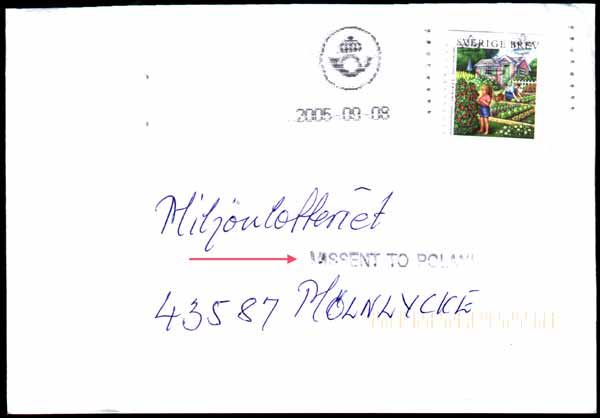 SVERIGE BREV
2005-09-08
Miljonlotteriet
MISSENT TO POLAND
43587 MÖLNLYCKE